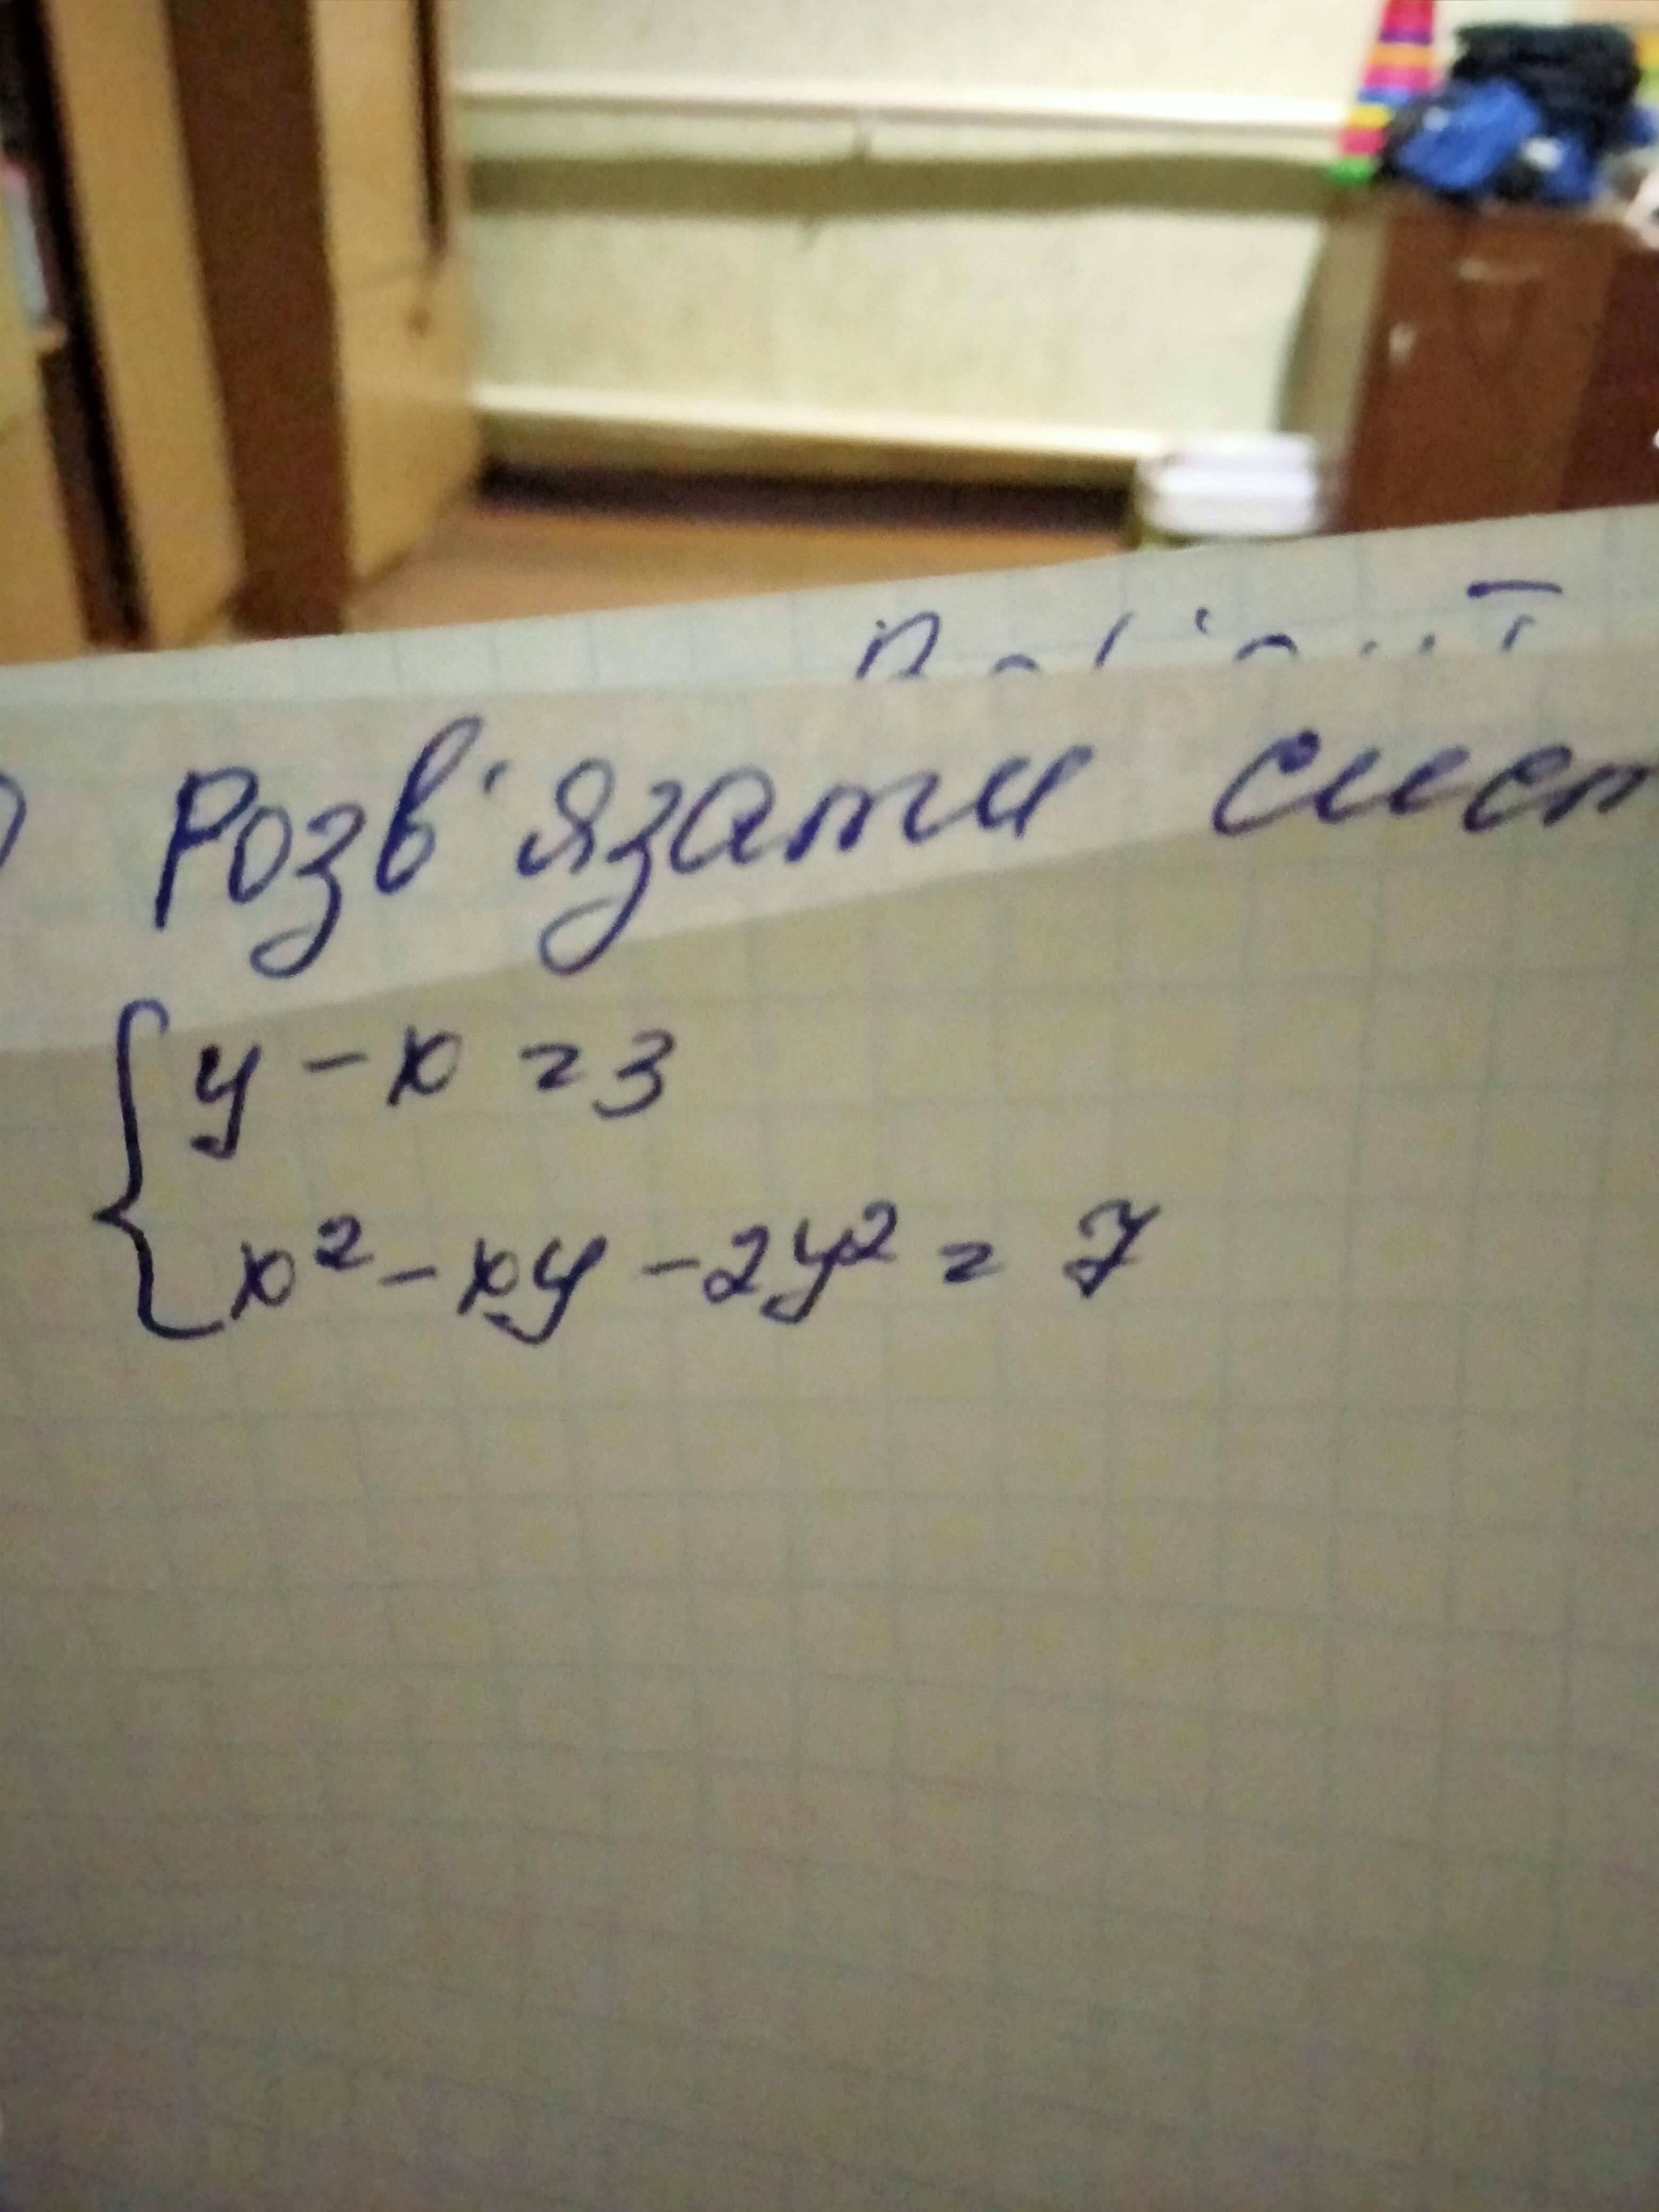 Розв'язати
y - x = 3
x² - xy - 2y² = 7